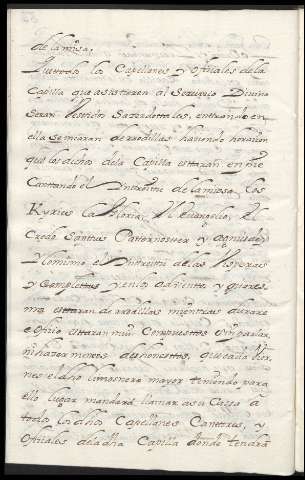 de la missa.
los Capellanes y ofiçiales de la
Capilla que assistieren al Seruiçio Diuino
seran Vestidos Saserdottales, entrando en
ella se incaran de rrodillas haziendo horaçion
que los dichos de la Capilla esttaran en pie
Canttando el Inttroittu de la missa, los
Kyries la Gloria, El Euangelio, El
Credo Santtus Patternostter y agnusdei
Y lo mismo el Inttroittu de las Visperas
y Complettas y en los de adviento y quares
ma esttaran de rrodillas mienttras durare
el ofiçio esttaran muy Compuesttos sin parlar
ni hazer menos deshonesttos, que cada Vier
nes el dho limosnero mayor teniendo para
ello lugar mandará llamar a su Cassa á
todos los dhos Capellanes Canttores, y
ofiçiales de la dha Capilla donde tendrá